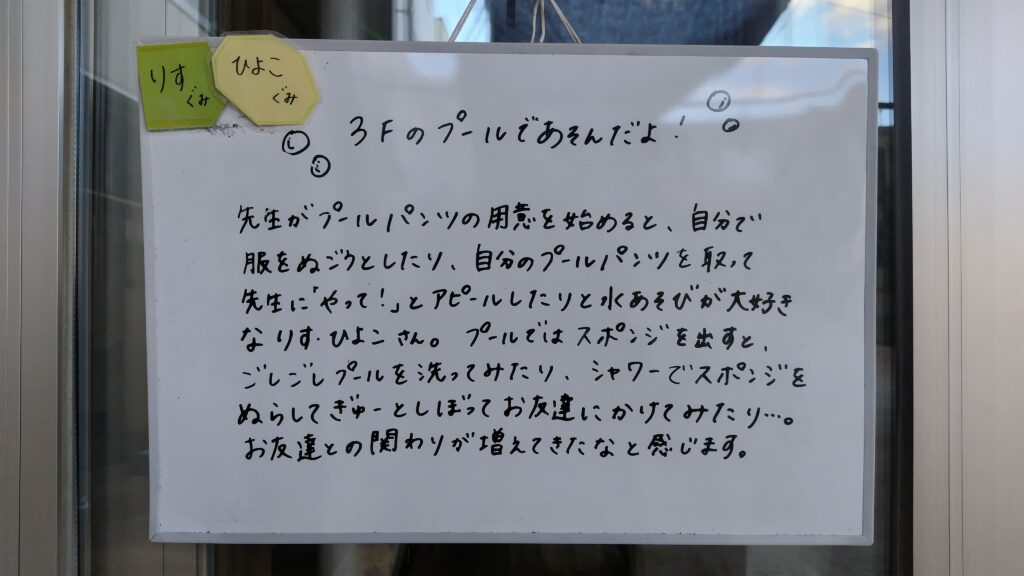 りす
ぐみ
ひよこ
ぐみ
3Fのプールであそんだよ!
先生がプールパンツの用意を始めると、自分で
服をぬごうとしたり、自分のプールパンツを取って
先生に「やって!」とアピールしたりと水あそびが大好き
なりす・ひよこさん。プールではスポンジを出すと、
ごしごしプールを洗ってみたり、シャワーでスポンジを
ぬらしてぎゅーとしぼってお友達にかけてみたり…。
お友達との関わりが増えてきたなと感じます。